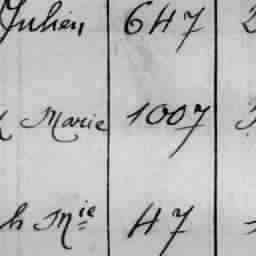 Julien 647
Marie 1007
h Mie 47